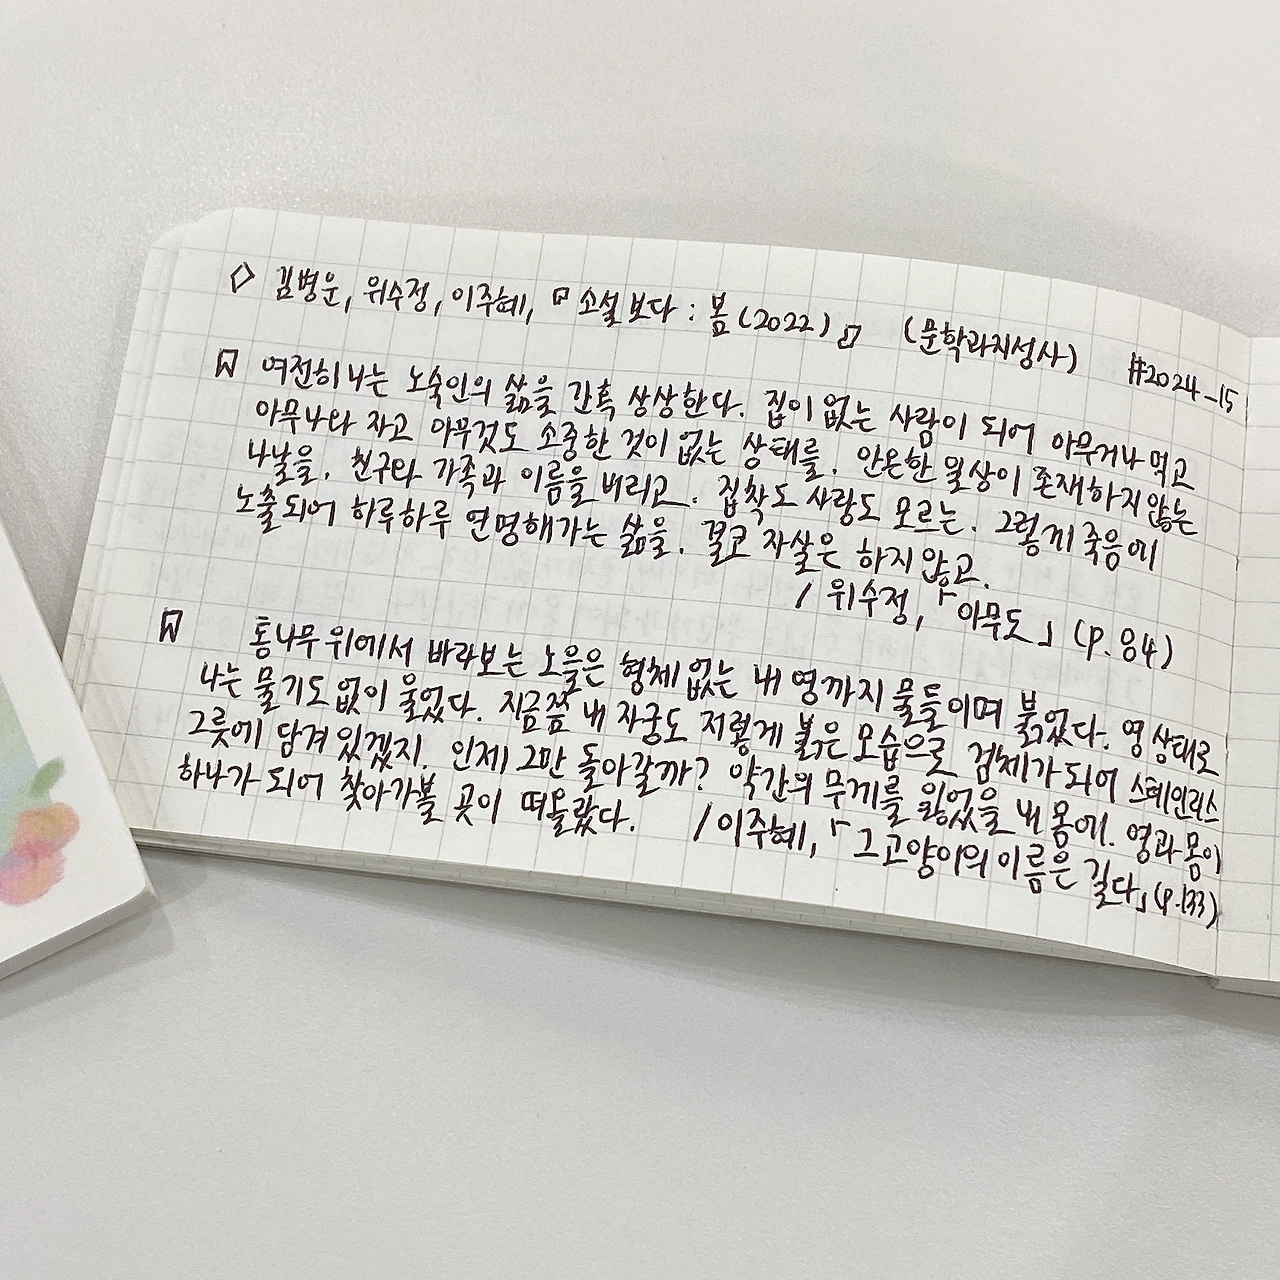 ◇ 김병운, 위수정, 이주혜, 『소설 보다 : 봄(2022)』 (문학과지성사) #2024-15
여전히 나는 노숙인의 삶을 간혹 상상한다. 집이 없는 사람이 되어 아무거나 먹고
아무나와 자고 아무것도 소중한 것이 없는 상태를. 안온한 일상이 존재하지 않는
나날을. 친구와 가족과 이름을 버리고. 집착도 사랑도 모르는. 그렇게 죽음에
노출되어 하루하루 연명해가는 삶을. 결코 자살은 하지 않고.
/ 위수정, 「아무도」 (p.84)
통나무 위에서 바라보는 노을은 형체 없는 내 영까지 물들이며 붉었다. 영 상태로
나는 물기도 없이 울었다. 지금쯤 내 자궁도 저렇게 붉은 모습으로 검체가 되어 스테인리스
그릇에 담겨 있겠지. 인제 그만 돌아갈까? 약간의 무게를 잃었을 내 몸에. 영과 몸이
하나가 되어 찾아가볼 곳이 떠올랐다. / 이주혜, 「그 고양이의 이름은 길다」(p.133)